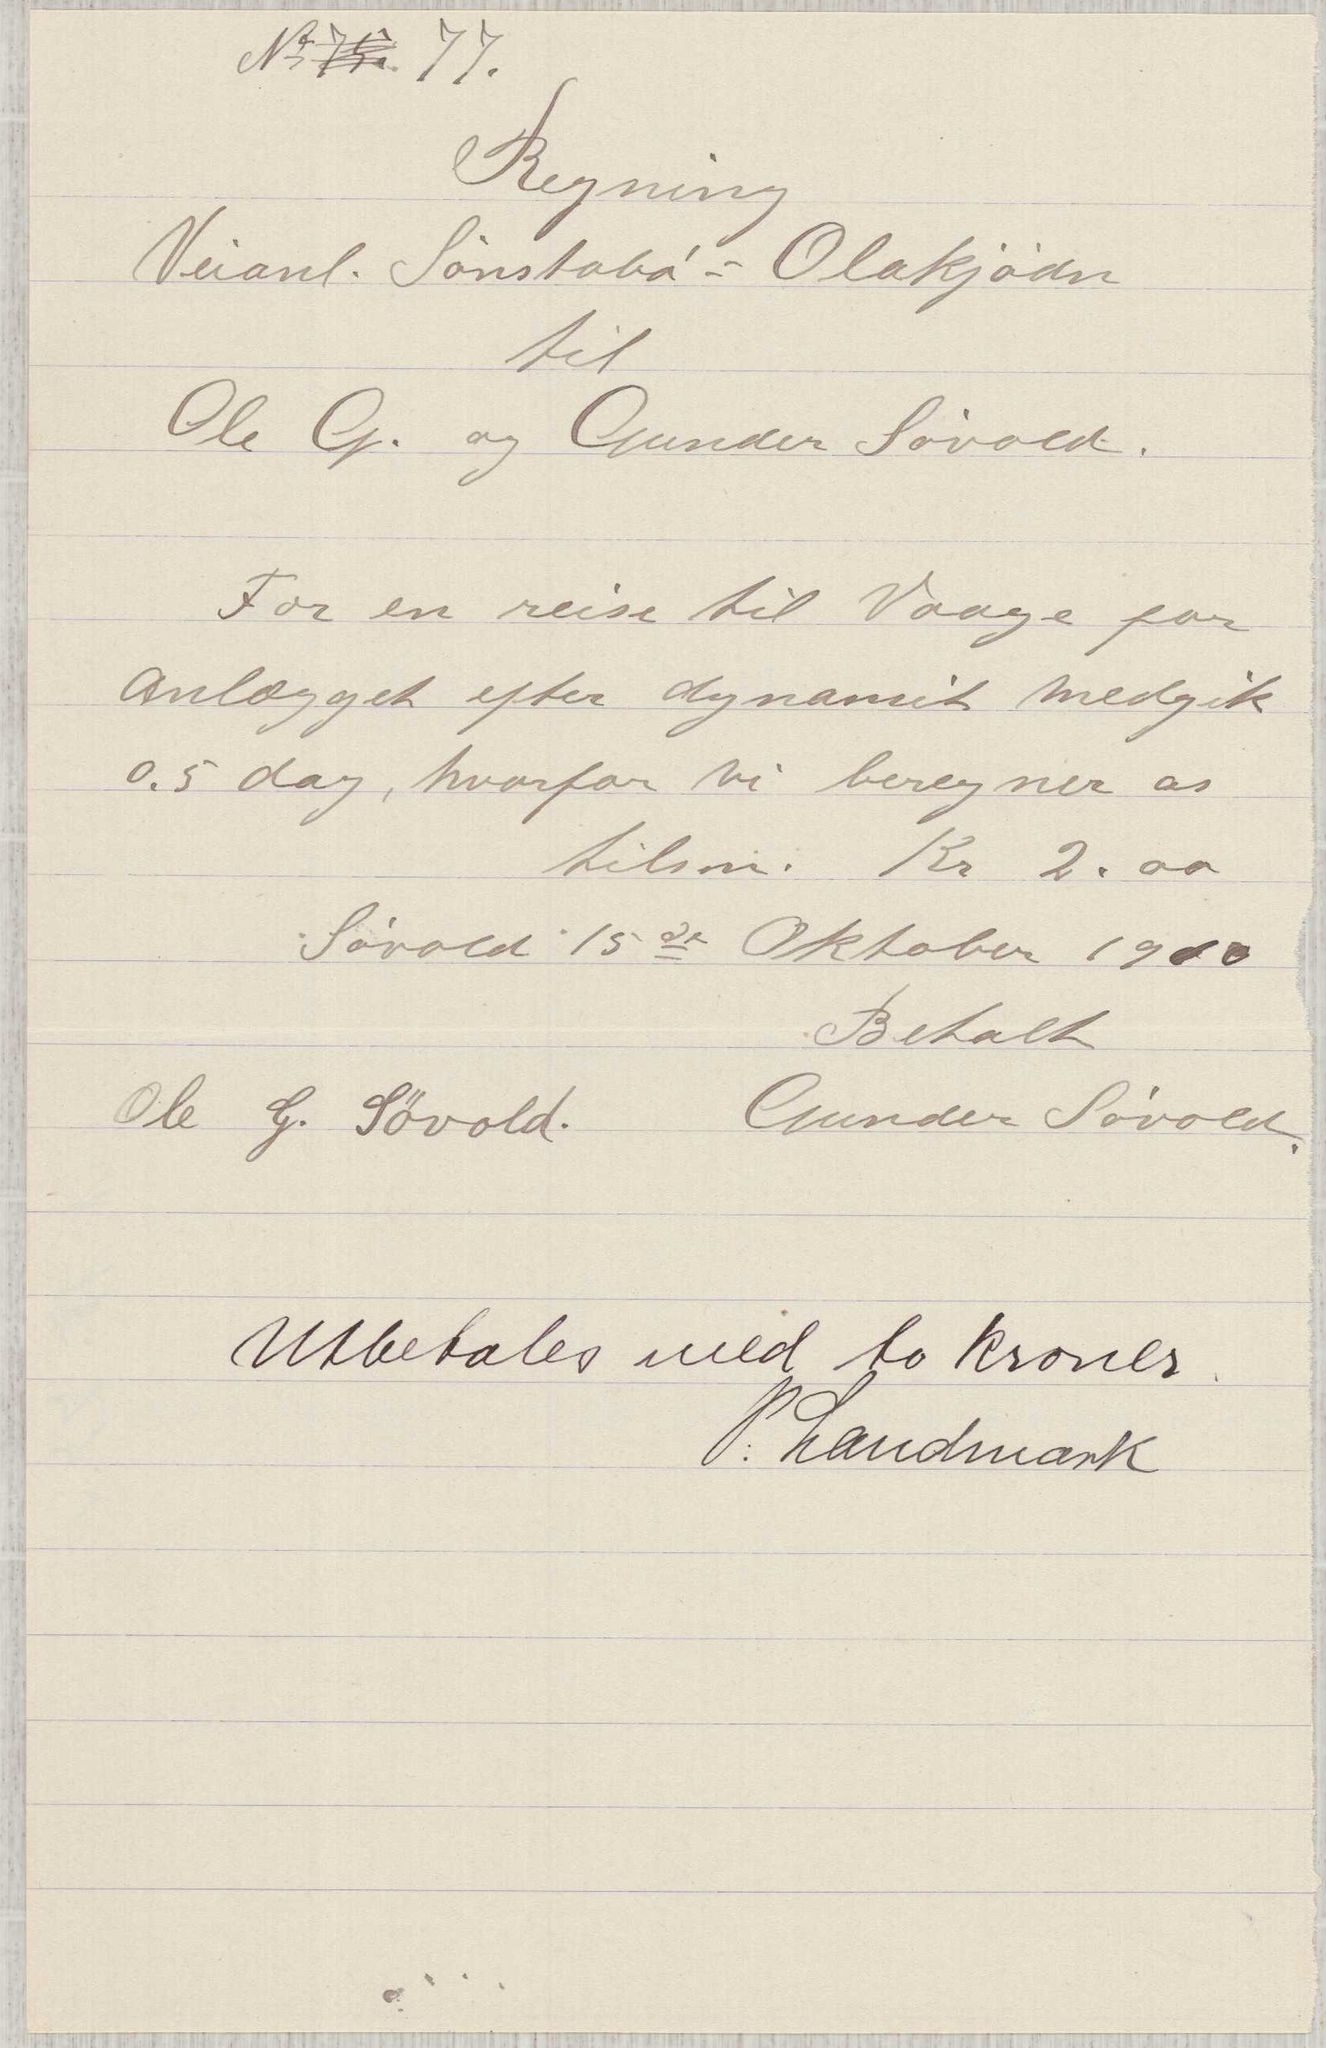 No 77.
Regning
Veianl. Sönstabö - Olakjödn
til
Ole G. og Gunder Sövold.
For en reise til Vaage for
Anlægget efter dynamit medgik
0.5 dag, hvorfor vi beregner os
tilsm. Kr 2.00
Sövold 15de Oktober 1910
Betalt
Ole G. Sövold. Gunder Sövold.
Utbetales med to kroner.
P. Landmark